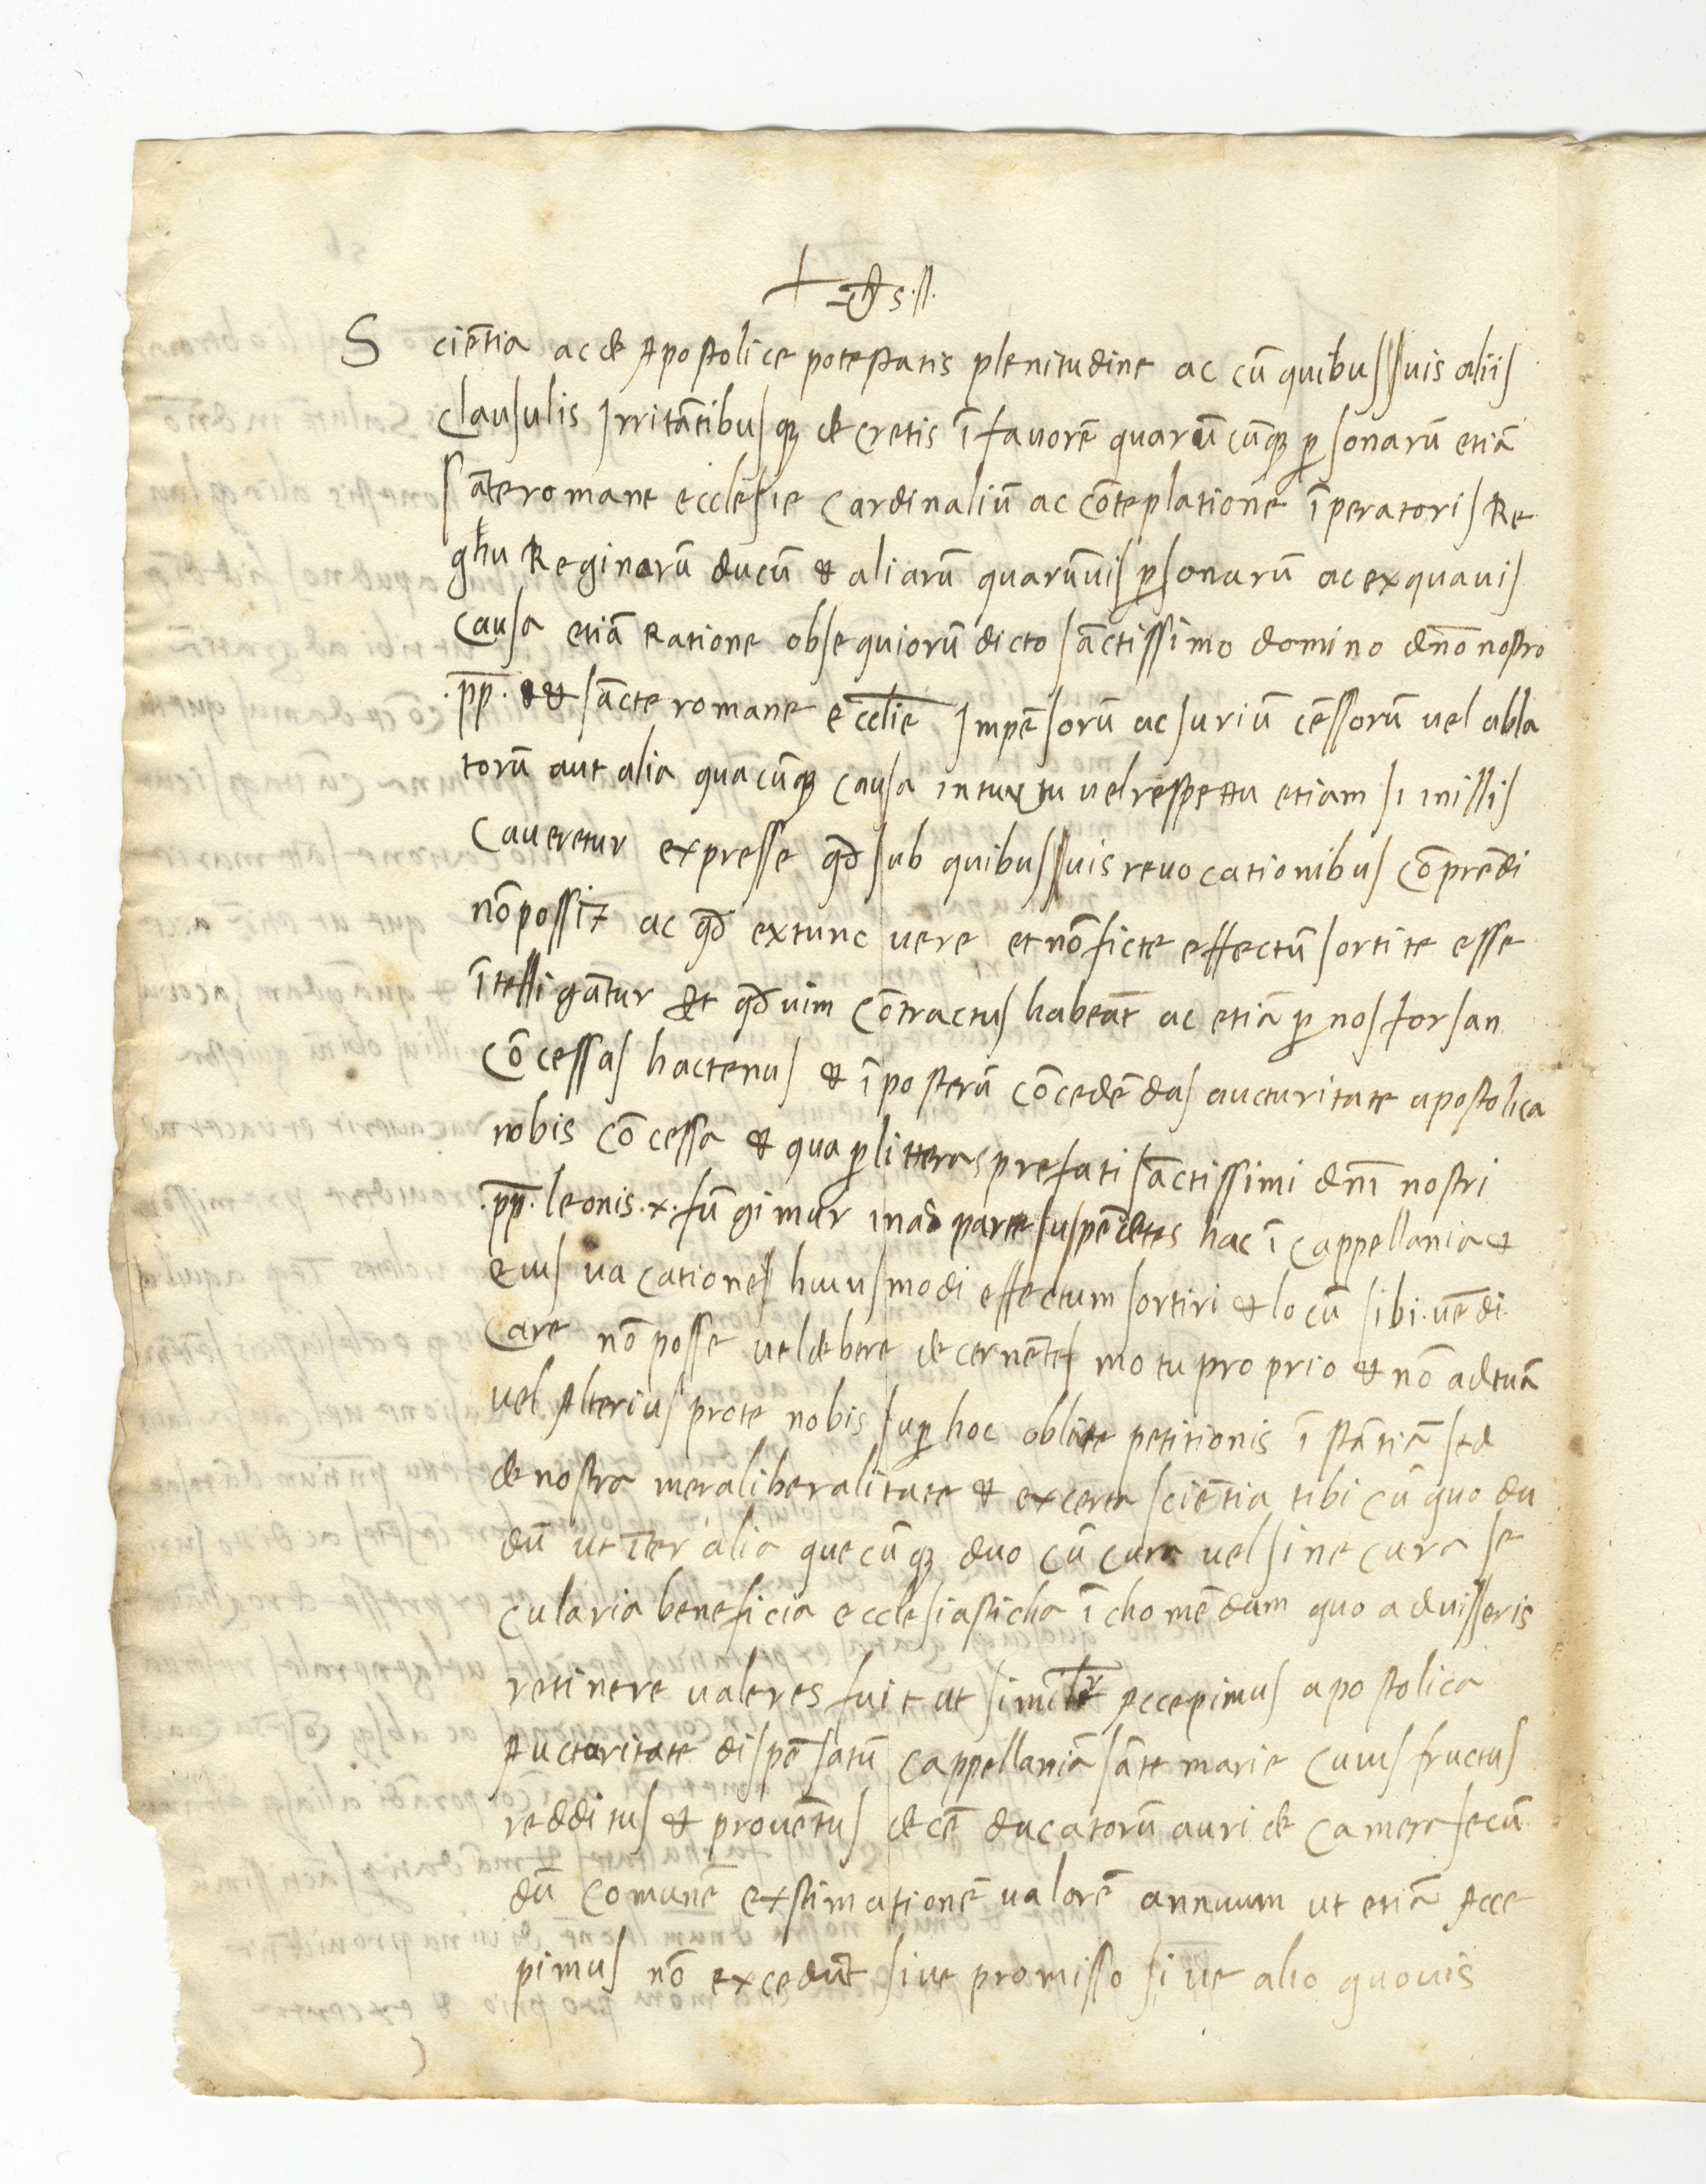 S ciētia ac de Apostolice potestatis plenitudine ac cū quibussuis aliis
clausulis Irritātibusq; decretis ī fauorē quarūcūq; p̱sonarū etiā
sāte romane ecclesie Cardinaliū ac cōteplatione īperatoris Re
ghu Reginarū ducū & aliarū quarūuis p̱sonarū ac ex quauis
Causa etiā Ratione obsequiorū dicto sāctissimo domino dn̄o nostro
.pp̄. & sācte romane eccl̄ie Impēsorū ac Iuriū cēssorū uel abla
torū aut alia quacūq; causa intuytu uel respettu etiam si in illis
Caueretur expresse qd̄ sub quibussuis reuocationibus cōprēdi
nō possit ac qd̄ extunc uere et nō ficte effectū sortite esse
ītelligātur Et qd̄ uim cōtractus habeāt ac etiā p̱ nos forsan
Cōcessas hactenus & ī posterū cōcedēdas aucturitate apostolica
nobis cōcessa & qua p̱ litteras prefati sāctissimi dn̄i nostri
.pp̄. leonis .x. fūgimur in ac parte suspēdētes hac ī cappellania &
eius uacatione huiusmodi effectum sortiri & locū sibi uēdi
Care nō posse uel debere decernētes motu proprio & nō ad tuā
uel Alterius pro te nobis sup̱ hoc oblate petitionis ī stātiā sed
de nostra mera liberalitate & ex certa sciētia tibi cū quo du
dū ut īter alia quecūq; duo cū cura uel sine cura se
cularia beneficia ecclesiasticha ī chomēdam quo aduisseris
retinere ualeres fuit ut simil̄r Accepimus apostolica
Auctoritate dispēsatū cappellaniā sāte marie cuius fructus
redditus & prouētus decē ducatorū auri de camera secū
dū comunē extimationē ualorē annuum ut etiā Acce
pimus nō excedūt siue promisso siue alio quouis